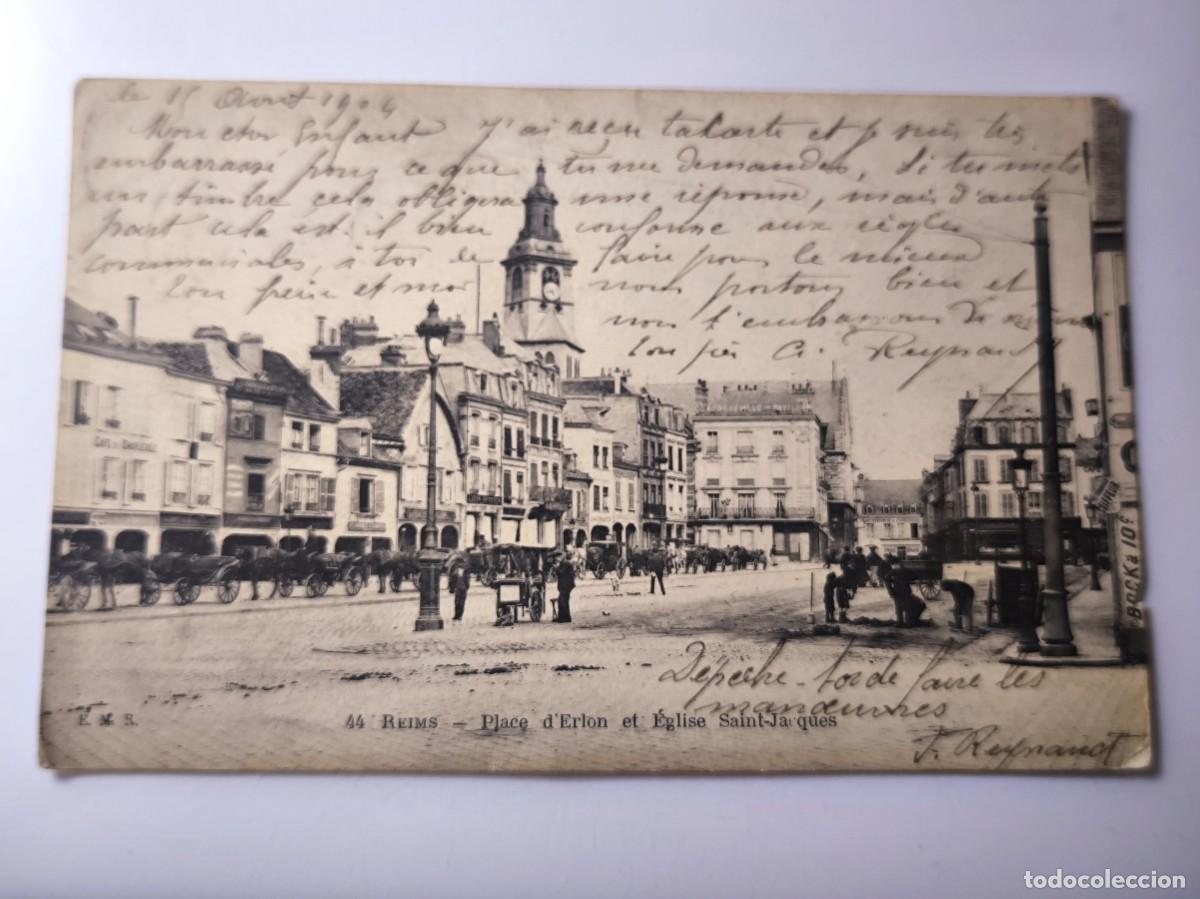 le 15 Août 1904
Mon cher Enfant J'ai reçu ta carte et je suis très
embarrassé pour ce que tu me demandes, si tu mets
un timbre cela obligera une réponse, mais d'autre
part cela est-il bien conforme aux règles
commerciales, à toi de faire pour le mieux
ton frère et moi nous portons bien et
nous t'embrassons de
ton père G. Reynaud
CAFÉ DU
BOCK à 10c
Dépêche-toi de faire les
manœuvres
F. Reynaud
E. M. R.
44 REIMS — Place d'Erlon et Église Saint-Jacques
todocoleccion